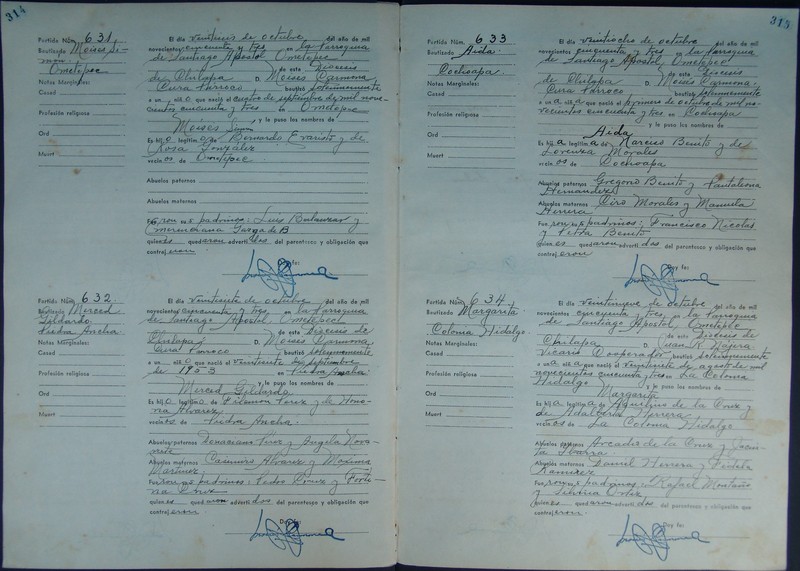 314
Partida Núm. 631
Bautizado Moises Si-
mon.
Ometepec
Notas Marginales:
Casad
Profesión religiosa
Ord
Muert
El día veintiseis de octubre del año de mil
novecientos cincuenta y tres en la Parroquia
de Santiago Apostol Ometepec
de esta Diocesis
de Chilapa D. Moises Carmona
Cura Parroco bautizó solemnemente
a un niño que nació el cuatro de septiembre de mil nove-
cientos cincuenta y tres en Ometepec
y le puso los nombres de
Moises Simon
Es hijo legitimo de Bernardo Evaristo y de
Rosa Gonzalez
vecinos de Ometepec
Abuelos paternos
Abuelos maternos
Fueron sus padrinos: Luis
y
quienes quedaron advertidos del parentesco y obligación que
contrajeron
Doy fe:
Partida Núm. 632
Bautizado Merced
Gildardo
Piedra Ancha
Notas Marginales:
Casad
Profesión religiosa
Ord
Muert
El día veintisiete de octubre del año de mil
novecientos cincuenta y tres, en la Parroquia
de Santiago Apostol, Ometepec
de esta Diocesis de
Chilapa D. Moises Carmona
Cura Parroco bautizó solemnemente
a un niño que nació el veintisiete de septiembre
de 1953 en Piedra Ancha
y le puso los nombres de
Merced Gildardo
Es hijo legitimo de Filemon Cruz y de Hono-
ria Alvarez
vecinos de Piedra Ancha.
Abuelos paternos Cruz y Angela Nava-
rrete
Abuelos maternos Casimiro Alvarez y Maxima
Martinez
Fueron sus padrinos: Pedro Cruz y
Cruz
quienes quedaron advertidos del parentesco y obligación que
contrajeron
Doy fe:
315
Partida Núm. 633
Bautizada Aida.
Cochoapa.
Notas Marginales:
Casad
Profesión religiosa
Ord
Muert
El día veintiocho de octubre del año de mil
novecientos cincuenta y tres en la Parroquia
de Santiago Apostol, Ometepec
de esta Diocesis
de Chilapa D. Moises Carmona.
Cura Parroco bautizó solemnemente
a una niña que nació el primero de octubre de mil no-
vecientos cincuenta y tres en Cochoapa
y le puso los nombres de
Aida
Es hija legitima de Narciso Benito y de
Lorenza Morales
vecinos de Cochoapa
Abuelos paternos Gregorio Benito y Pantaleona
Hernandez
Abuelos maternos Ciro Morales y Manuela
Herrera
Fueron sus padrinos: Francisco Nicolas
y Petra Benito
quienes quedaron advertidos del parentesco y obligación que
contrajeron
Doy fe:
Partida Núm. 634
Bautizada Margarita
Colonia Hidalgo
Notas Marginales:
Casad
Profesión religiosa
Ord
Muert
El día veintinueve de octubre del año de mil
novecientos cincuenta y tres, en la Parroquia
de Santiago Apostol, Ometepec
de esta Diocesis de
Chilapa D. Juan N. Nájera
Vicario Cooperador bautizó solemnemente
a una niña que nació el veintisiete de agosto de mil
novecientos cincuenta y tres en La Colonia
Hidalgo y le puso los nombres de
Margarita
Es hija legitima de de la Cruz y
de Adalberta Herrera
vecinos de La Colonia Hidalgo
Abuelos paternos Arcadio de la Cruz y
Ibarra
Abuelos maternos Daniel Herrera y Fidela
Ramirez
Fueron sus padrinos: Rafael Montaño
y Silvina Ortiz
quienes quedaron advertidos del parentesco y obligación que
contrajeron
Doy fe: